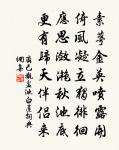 素萼金英噴露開
倚風凝立獨徘徊
應思瀲灩秋池底
更有歸天伴侶來
觀盆池白蓮詞典